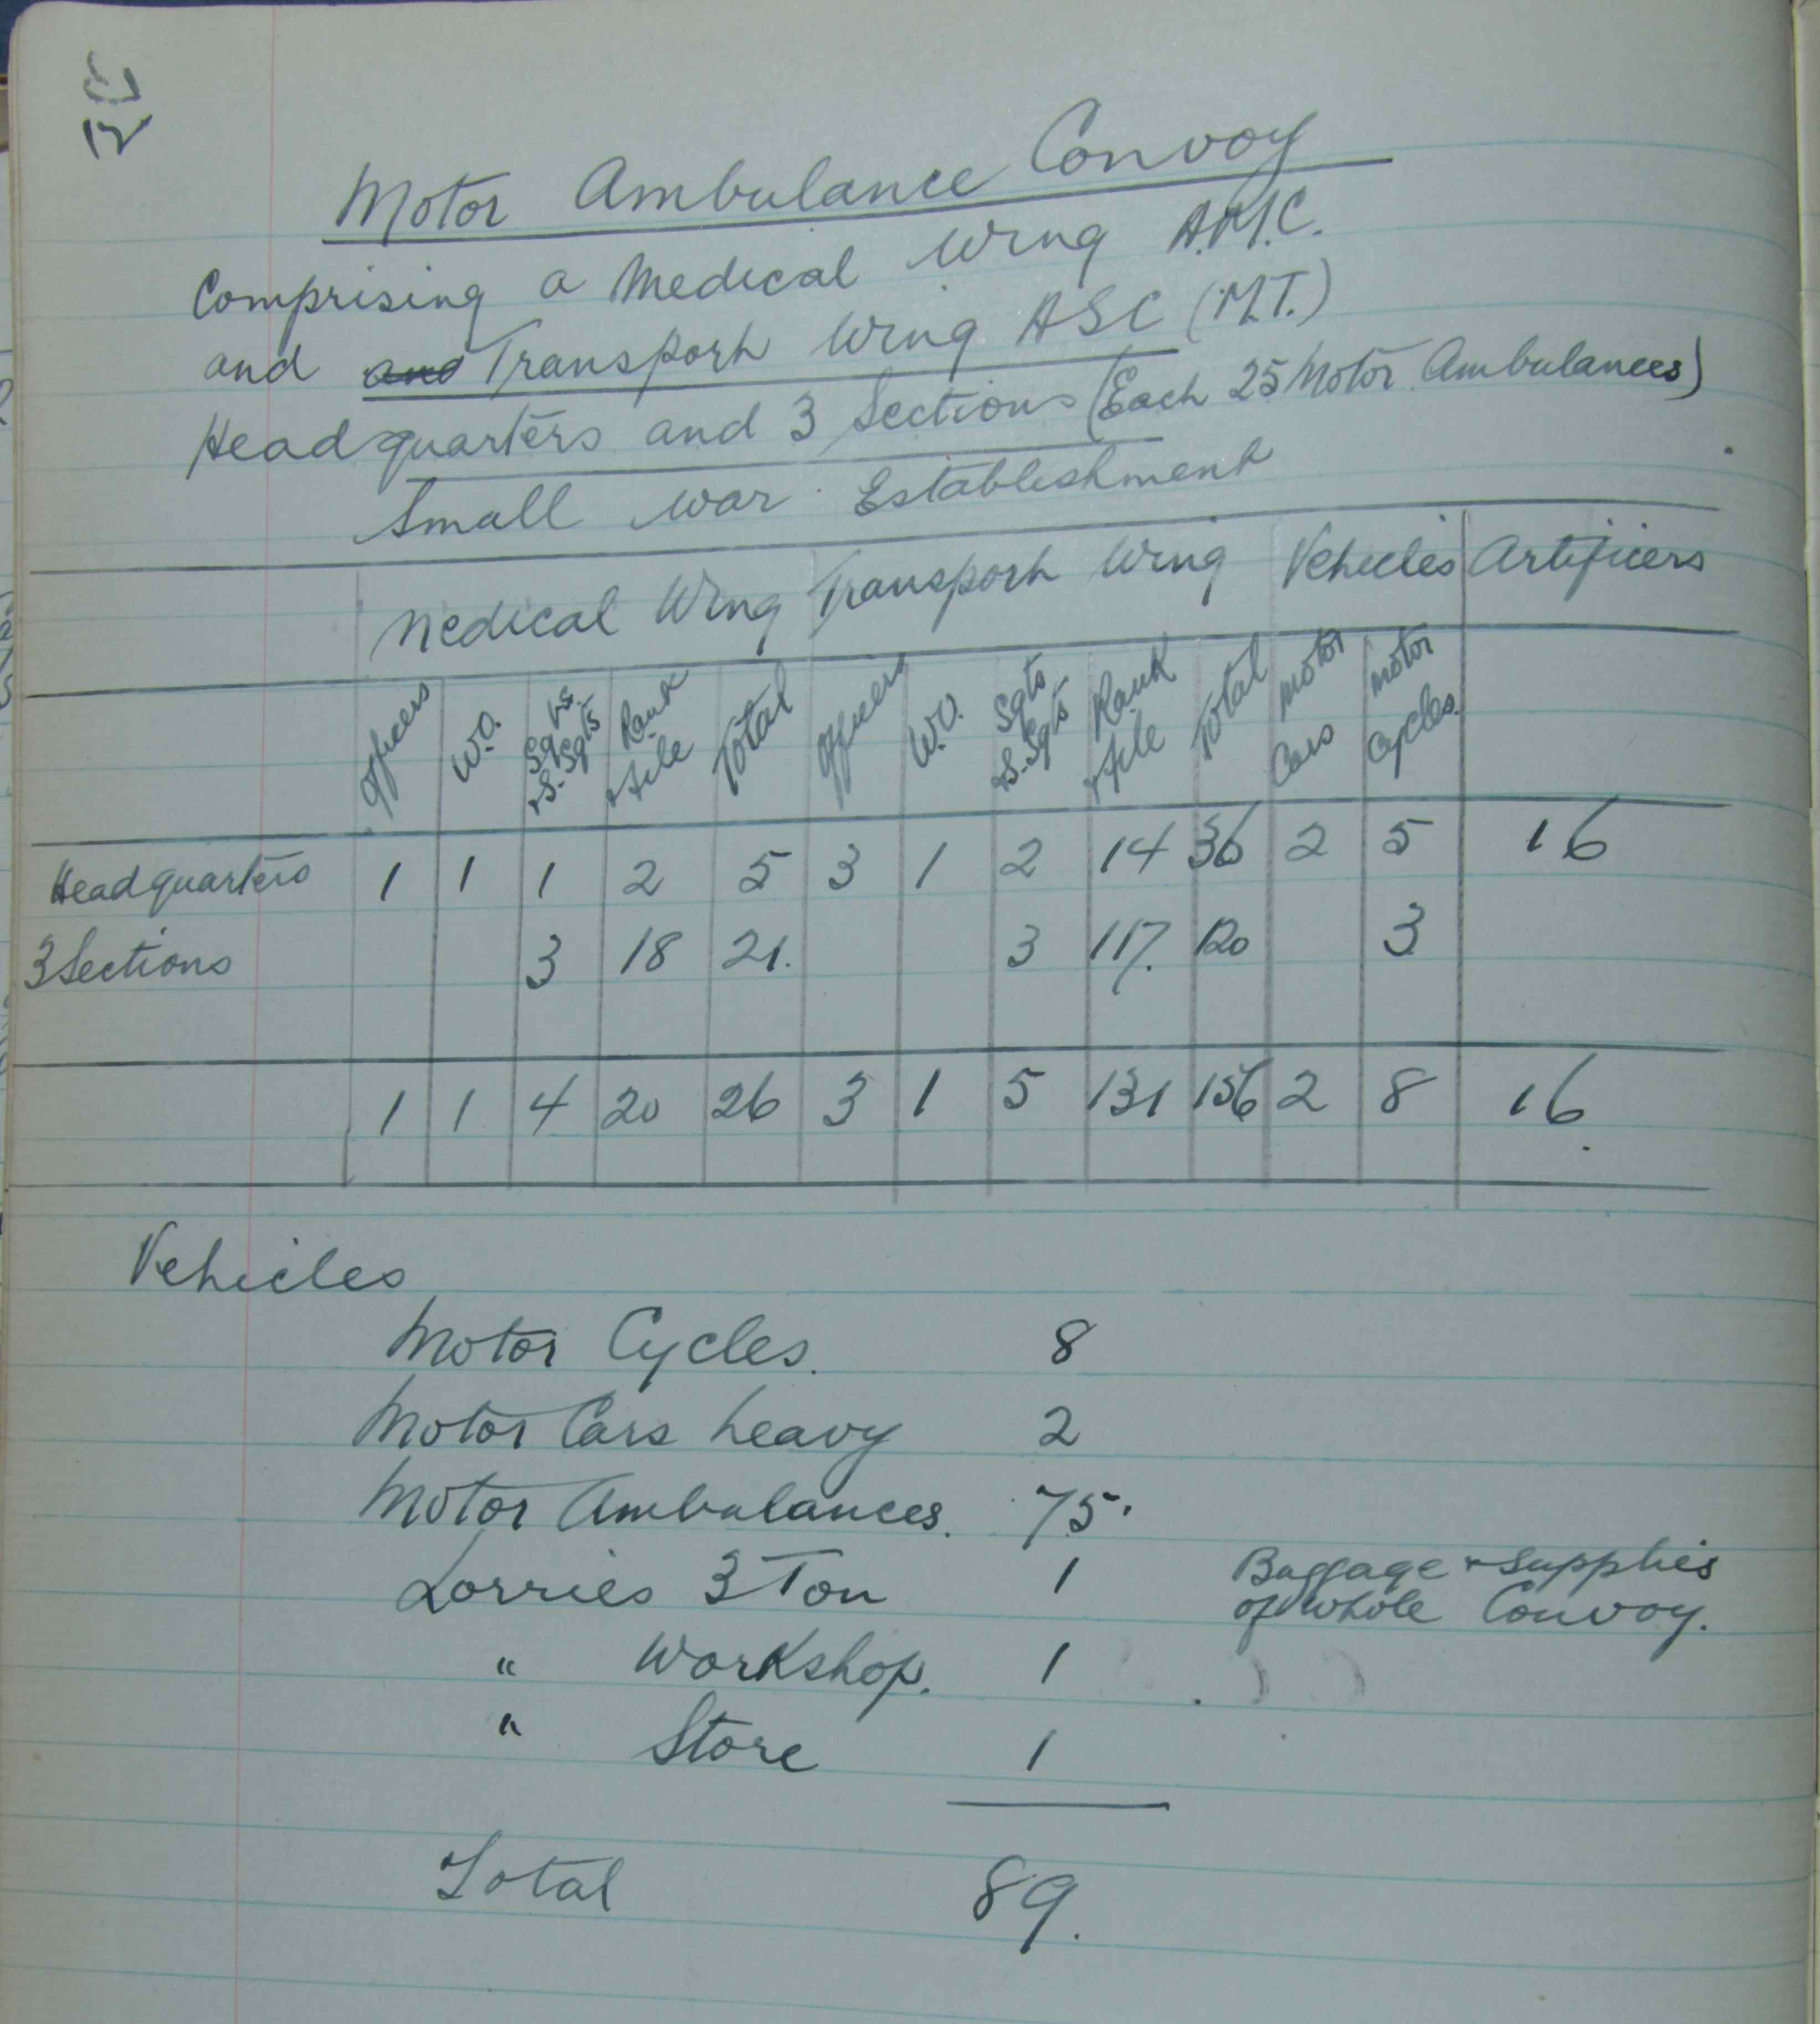 Motor Ambulance Convoy
Comprising a Medical Wing A.M.C.
and and Transport Wing ASC (M.T.)
Headquarters and 3 Sections (Each 25 Motor Ambulances)
Small War Establishment
Medical Wing Transport Wing Vehicles Artificers
Officers W.O. Sgts & S. Sgts Rank & File Total Officers W.O. Sgts & S. Sgts Rank & File Total Motor Cars Motor Cycles.
Headquarters 1 1 1 2 5 3 1 2 14 36 2 5 16
3 Sections 3 18 21. 3 117. 120 3
1 1 4 20 26 3 1 5 131 156 2 8 16.
Vehicles
Motor Cycles. 8
Motor Cars heavy 2
Motor Ambulances. 75.
Lorries 3 Ton 1 Baggage & supplies
of whole Convoy.
" Workshop. 1
" Store 1
Total 89.